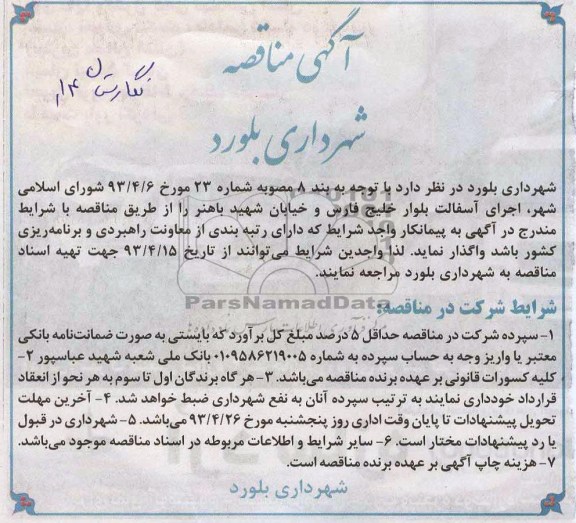 آگهی مناقصه
شهرداری بلورد
شهرداری بلورد در نظر دارد با توجه به بند ۸ مصوبه شماره ۲۳ مورخ ۹۳/۴/۶ شورای اسلامی
شهر، اجرای آسفالت بلوار خلیج فارس و خیابان شهید باهنر را از طریق مناقصه با شرایط
مندرج در آگهی به پیمانکار واجد شرایط که دارای رتبه بندی از معاونت راهبردی و برنامه‌ریزی
کشور باشد واگذار نماید. لذا واجدین شرایط می‌توانند از تاریخ ۹۳/۴/۱۵ جهت تهیه اسناد
مناقصه به شهرداری بلورد مراجعه نمایند.
ParsNamadData
شرایط شرکت در مناقصه:
۱- سپرده شرکت در مناقصه حداقل ۵ درصد مبلغ کل برآورد که بایستی به صورت ضمانت‌نامه بانکی
معتبر یا واریز وجه به حساب سپرده به شماره ۰۱۰۹۵۸۶۲۱۹۰۰۵ بانک ملی شعبه شهید عباسپور ۲-
کلیه کسورات قانونی بر عهده برنده مناقصه می‌باشد. ۳- هر گاه برندگان اول تا سوم به هر نحو از انعقاد
قرارداد خودداری نمایند به ترتیب سپرده آنان به نفع شهرداری ضبط خواهد شد. ۴- آخرین مهلت
تحویل پیشنهادات تا پایان وقت اداری روز پنجشنبه مورخ ۹۳/۴/۲۶ می‌باشد. ۵- شهرداری در قبول
یا رد پیشنهادات مختار است. ۶- سایر شرایط و اطلاعات مربوطه در اسناد مناقصه موجود می‌باشد.
۷- هزینه چاپ آگهی بر عهده برنده مناقصه است.
شهرداری بلورد